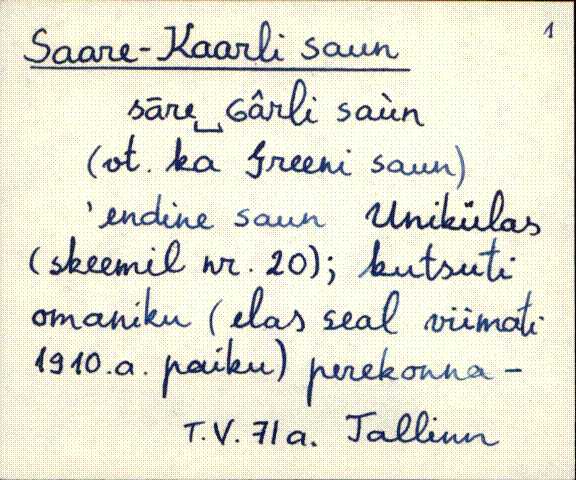 1
Saare-Kaarli saun
sāre‿Gârli saùn
(vt. ka Greeni saun)
'endine saun Unikülas
(skeemil nr. 20); kutsuti
omaniku (elas seal viimati
1910.a. paiku) perekonna-
T.V. 71a. Tallinn